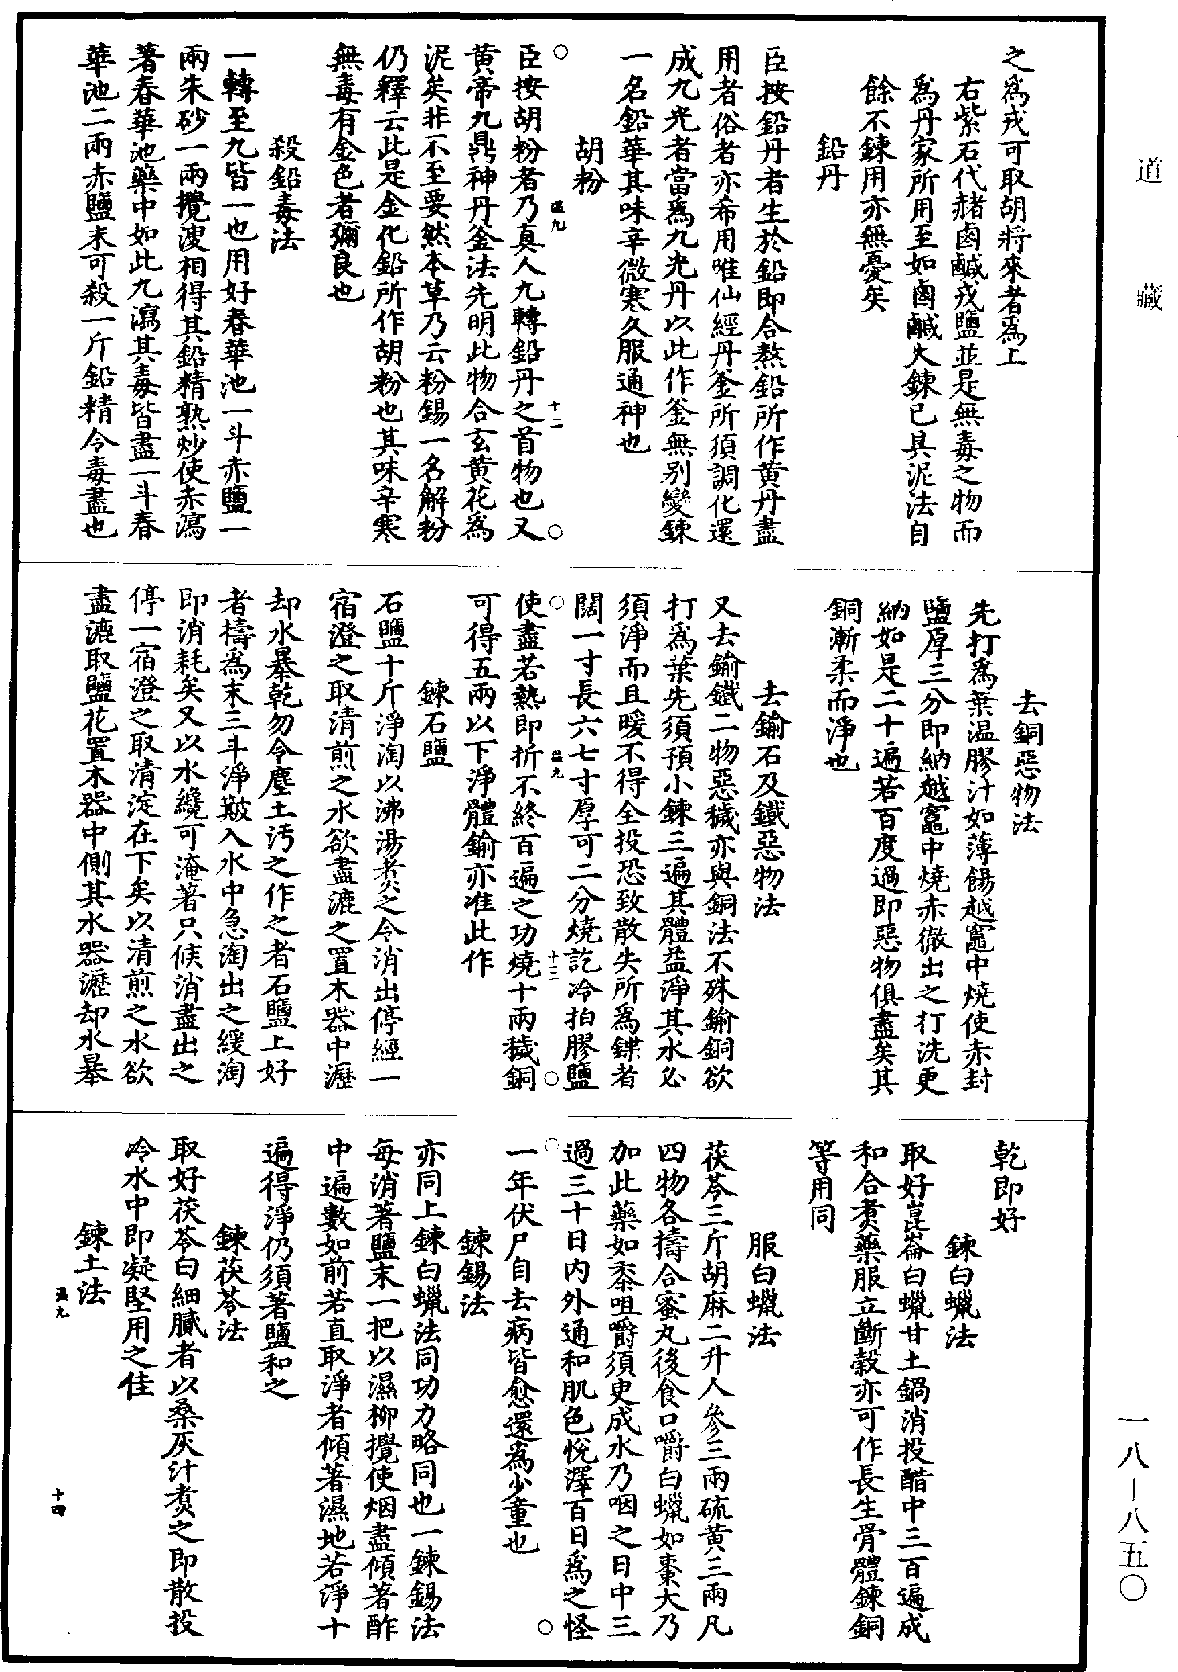 道藏
一八—八五〇
之爲戎可取胡將來者爲上
右紫石代赭鹵鹹戎鹽並是無毒之物而
爲丹家所用至如鹵鹹火鍊已具泥法自
餘不鍊用亦無憂矣
鉛丹
臣按鉛丹者生於鉛即合熬鉛所作黄丹盡
用者俗者亦希用唯仙經丹釜所須調化還
成九光者當爲九光丹以此作釜無别變鍊
一名鉛華其味辛微寒久服通神也
胡粉
臣按胡粉者乃真人九轉鉛丹之首物也又
黄帝九鼎神丹釜法先明此物合玄黄花爲
泥矣非不至要然本草乃云粉錫一名解粉
仍釋云此是金化鉛所作胡粉也其味辛寒
無毒有金色者彌良也
殺鉛毒法
一轉至九皆一也用好春華池一斗赤鹽一
兩朱砂一兩攪溲相得其鉛精熟炒使赤瀉
著春華池藥中如此九瀉其毒皆盡一斗春
華池二兩赤鹽末可殺一斤鉛精令毒盡也
去銅惡物法
先打爲葉温膠汁如薄餳越竈中燒使赤封
鹽厚三分即納越竈中燒赤徹出之打洗更
納如是二十遍若百度過即惡物俱盡矣其
銅漸柔而淨也
去鍮石及鐵惡物法
又去鍮鐵二物惡穢亦與銅法不殊鍮銅欲
打爲葉先須預小鍊三遍其體益淨其水必
須淨而且暖不得全投恐致散失所爲鍱者
闊一寸長六七寸厚可二分燒訖冷拍膠鹽
使盡若熟即折不終百遍之功燒十兩穢銅
可得五兩以下淨體鍮亦准此作
鍊石鹽
石鹽十斤淨淘以沸湯煑之令消出停經一
宿澄之取清煎之水欲盡漉之置木器中瀝
却水暴乾勿令塵土污之作之者石鹽上好
者擣爲末三斗淨皺入水中急淘出之緩淘
即消耗矣又以水纔可淹著只候消盡出之
停一宿澄之取清淀在下矣以清煎之水欲
盡漉取鹽花置木器中側其水器瀝却水暴
乾即好
鍊白蠟法
取好崑崙白蠟甘土鍋消投醋中三百遍成
和合煑藥服立斷穀亦可作長生骨體鍊銅
等用同
服白蠟法
茯苓三斤胡麻二升人參三兩硫黄三兩凡
四物各擣合蜜丸後食口嚼白蠟如棗大乃
加此藥如黍咀嚼須臾成水乃咽之日中三
過三十日内外通和肌色悅澤百日爲之怪
一年伏尸自去病皆愈還爲少童也
鍊錫法
亦同上鍊白蠟法同功力略同也一鍊錫法
每消著鹽末一把以濕柳攪使烟盡傾著酢
中遍數如前若直取淨者傾著濕地若淨十
遍得淨仍須著鹽和之
鍊茯苓法
取好茯苓白細膩者以桑灰汁煑之即散投
冷水中即凝堅用之佳
鍊土法
温九
十二
温九
十三
温九
十四